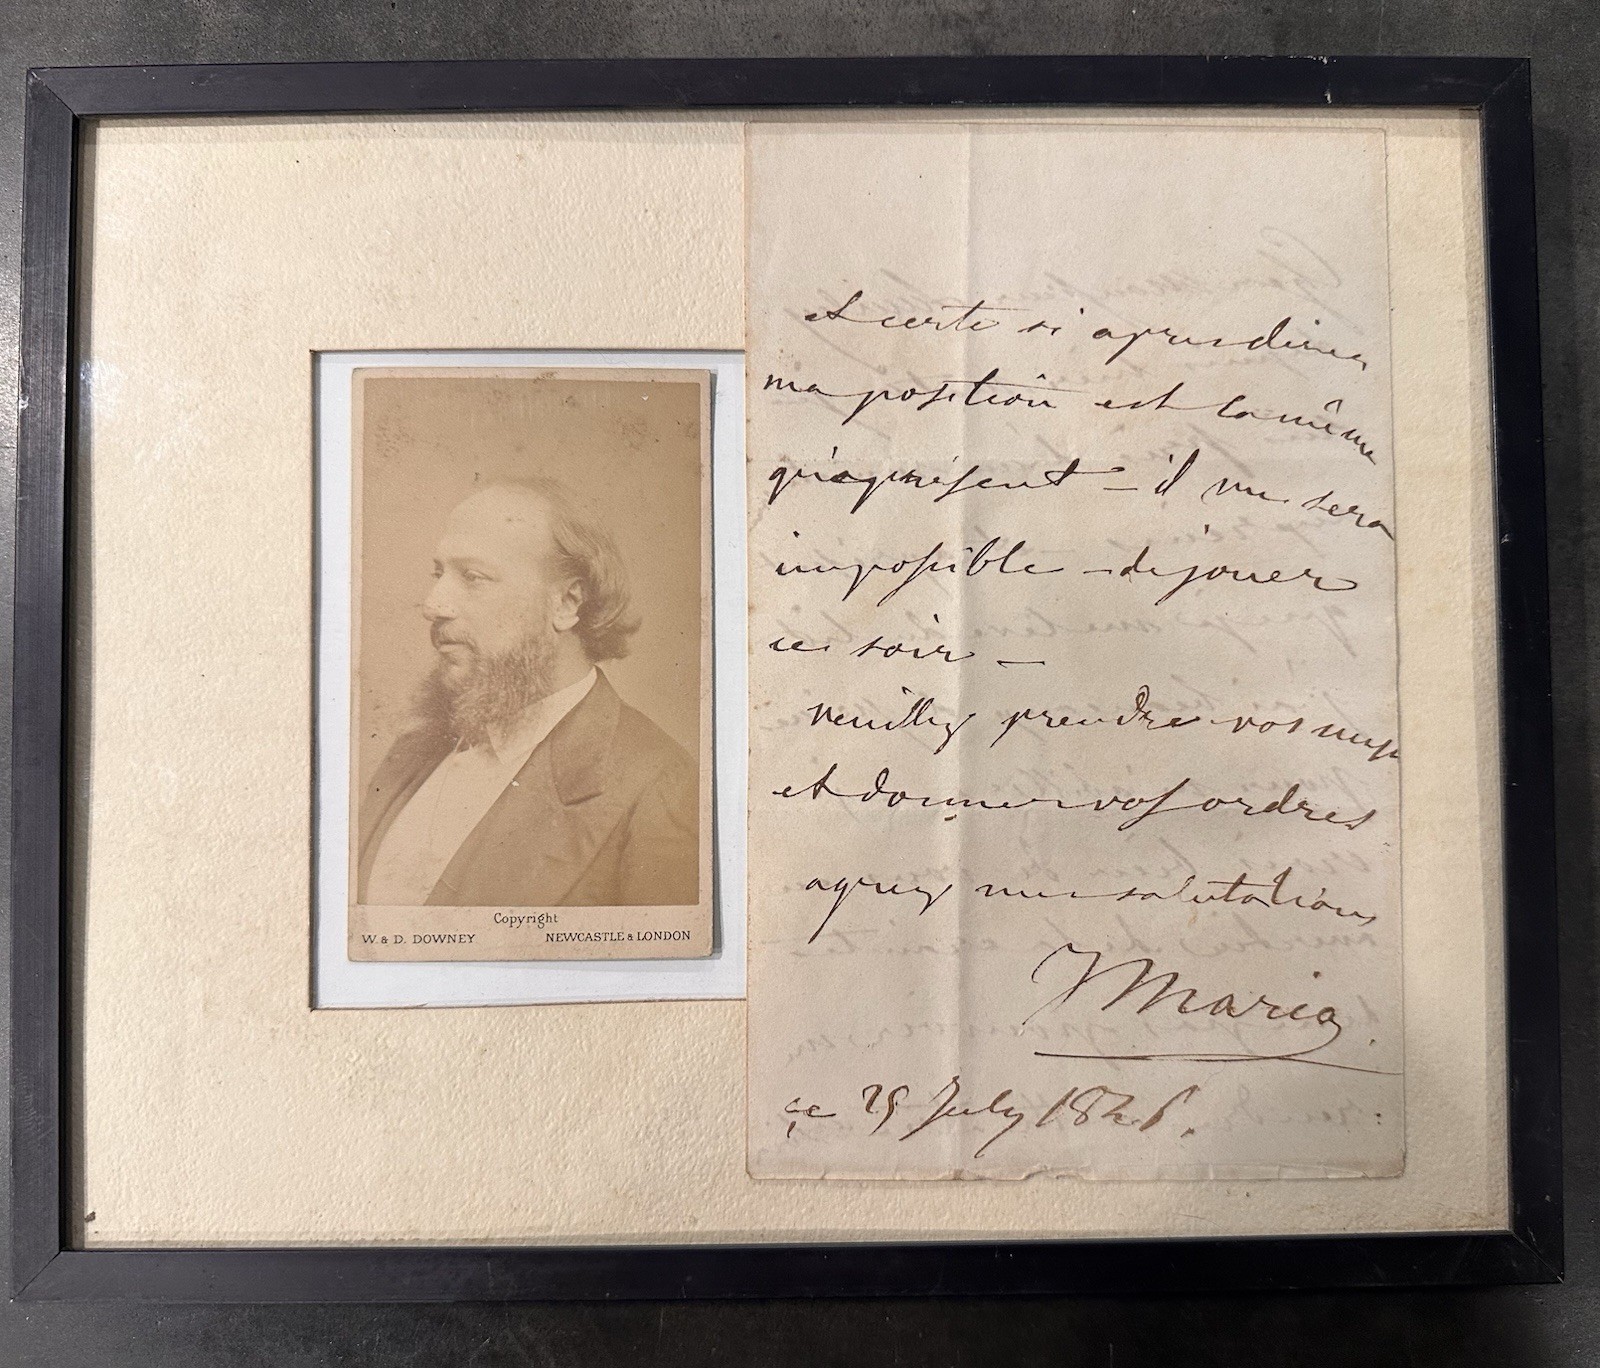 Copyright
W. & D. DOWNEY NEWCASTLE & LONDON
et certe si apres diner
ma position est la même
qu'aprésent – il me sera
impossible – de jouer
ce soir –
veuillez prendre vos
et donner vos ordres
agreez mes salutations
Mario
ce 29 July 184